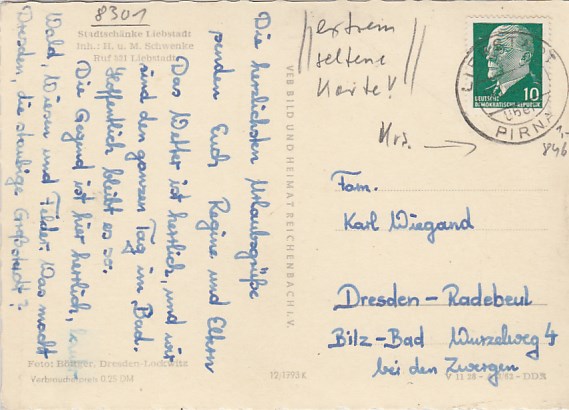 8301
Stadtschänke Liebstadt
Inh.: H. u. M. Schwenke
Ruf 321 Liebstadt
Die herrlichsten Urlaubsgrüße
senden Euch Regine und Eltern
Das Wetter ist herrlich, und wir
sind den ganzen Tag im Bad.
Hoffentlich bleibt es so.
Die Gegend ist hier herrlich,
Wald, Wiesen und Felder. Was macht
Dresden, die staubige Großstadt?
Foto: Böttger, Dresden-Lockwitz
Verbraucherpreis 0,25 DM
VEB BILD UND HEIMAT REICHENBACH I. V.
12/1793 K
extrem
seltene
Karte!
DEUTSCHE
DEMOKRATISCHE REPUBLIK
10
LIEBSTADT
über
PIRNA
1,-
846
Fam.
Karl Wiegand
Dresden-Radebeul
Bilz-Bad Wurzelweg 4
bei den Zwergen
DDR